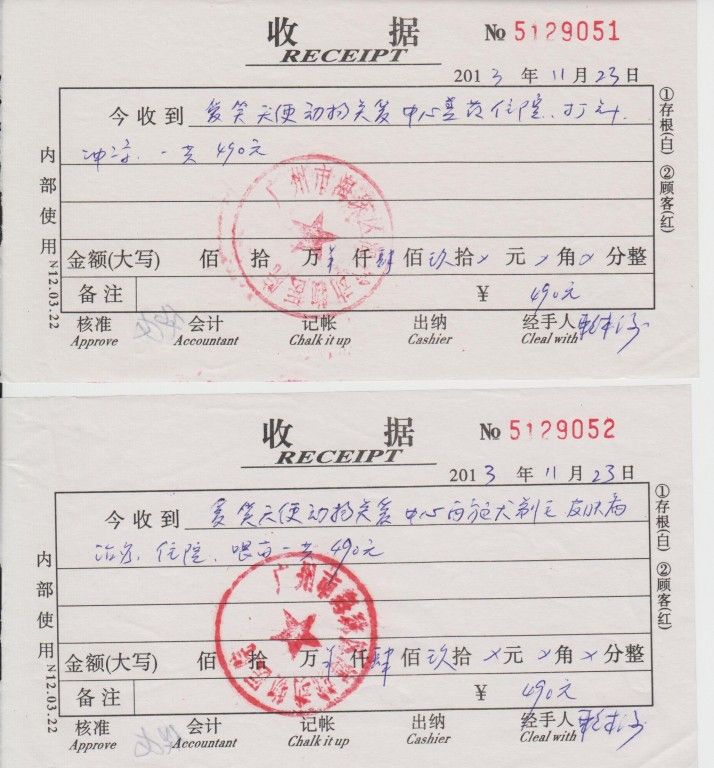 收 据
RECEIPT
№ 5129051
2013 年 11 月 23 日
今收到 爱笑天使动物关爱中心 住院、打针、
冲凉、一共490元
内部使用
N12.03.22
①存根(白) ②顾客(红)
金额(大写) 佰 拾 万 仟 肆 佰 玖 拾 × 元 × 角 × 分整
备注 ¥ 490元
核准 会计 记帐 出纳 经手人
Approve Accountant Chalk it up Cashier Cleal with
广州市海珠区 动物医院
收 据
RECEIPT
№ 5129052
2013 年 11 月 23 日
今收到 爱笑天使动物关爱中心 犬剃毛 皮肤病
治疗、住院、喂 一共490元
内部使用
N12.03.22
①存根(白) ②顾客(红)
金额(大写) 佰 拾 万 仟 肆 佰 玖 拾 × 元 × 角 × 分整
备注 ¥ 490元
核准 会计 记帐 出纳 经手人
Approve Accountant Chalk it up Cashier Cleal with
广州市海珠区 动物医院